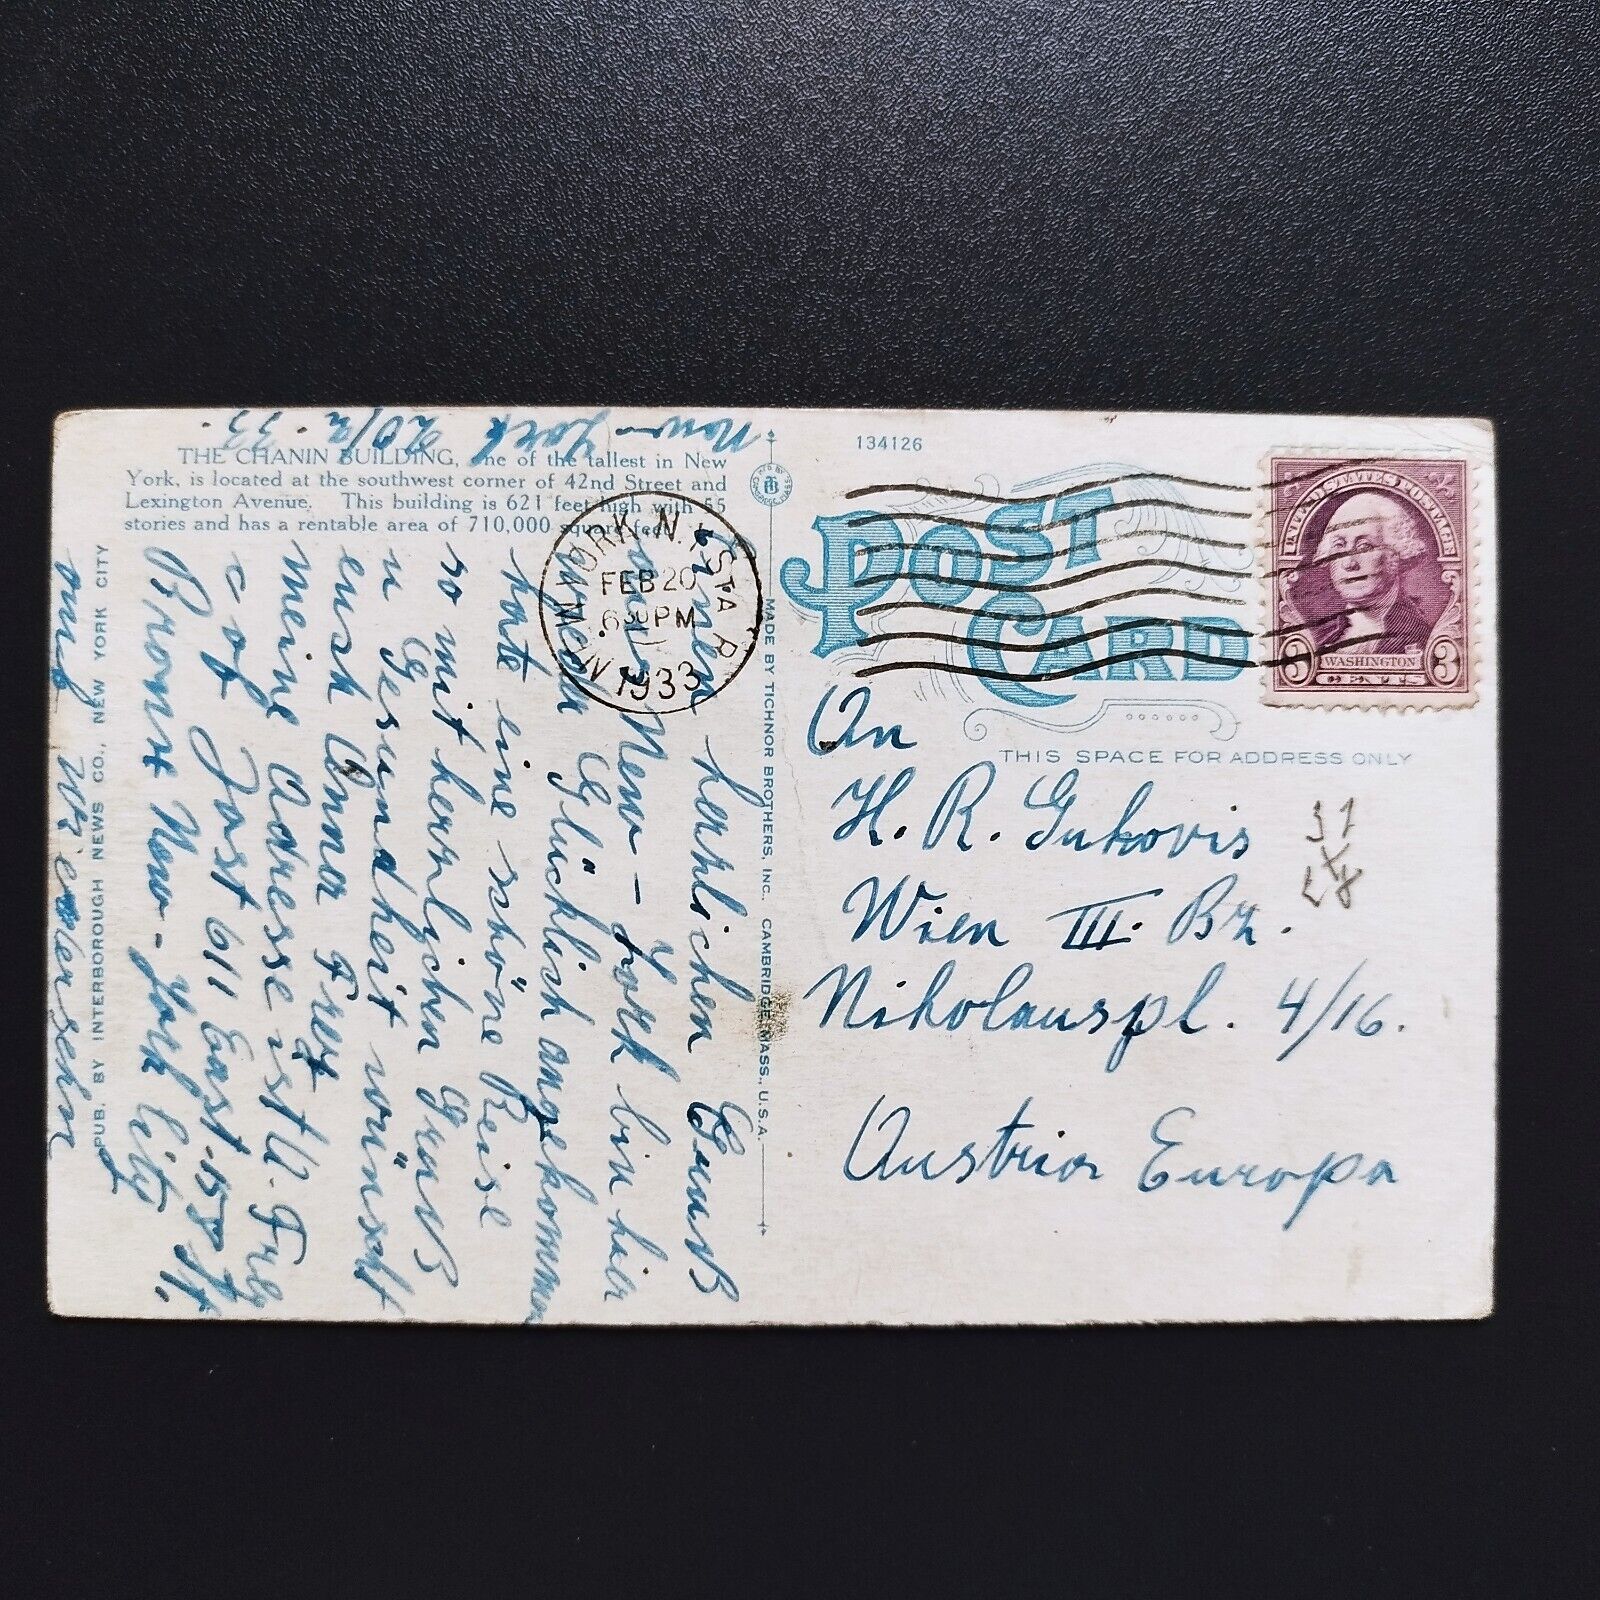 THE CHANIN BUILDING, one of the tallest in New
York, is located at the southwest corner of 42nd Street and
Lexington Avenue. This building is 621 feet high with 55
stories and has a rentable area of 710,000 square feet.
New-York 20/2. 33
Einen herzlichen Gruuß
aus New-York bin hier
wieder Glücklich angekommen
hate eine schöne Reise
so mit herzlichen Gruß
u Gesundheit wünscht
eush Anna Frey
meine Adresse ist A. Frey
c of Jost 611 East. 158 St.
Bronx New-York City
auf Wiedersehn
PUB. BY INTERBOROUGH NEWS CO., NEW YORK CITY
MADE BY TICHNOR BROTHERS, INC., CAMBRIDGE, MASS., U.S.A.
NEW YORK, N.Y. STA. R
FEB 20
6 30 PM
1933
134126
POST
CARD
THIS SPACE FOR ADDRESS ONLY
UNITED STATES POSTAGE
3 WASHINGTON 3
CENTS
An
H. R. Gukovis
Wien III. Bz.
Nikolauspl. 4/16.
Austria Europa